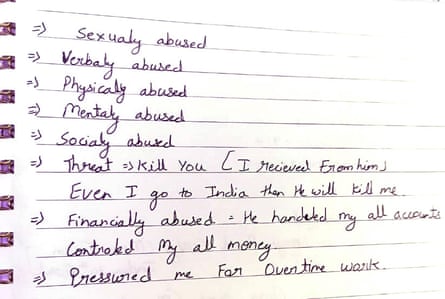 => Sexualy abused
=> Verbaly abused
=> Physicaly abused
=> Mentaly abused
=> Socialy abused
=> Threat => Kill You [ I recieved From him)
Even I go to India then He will kill me
=> Financially abused = He handeled my all accounts
Controled My all money
=> Pressured me For Overtime work.